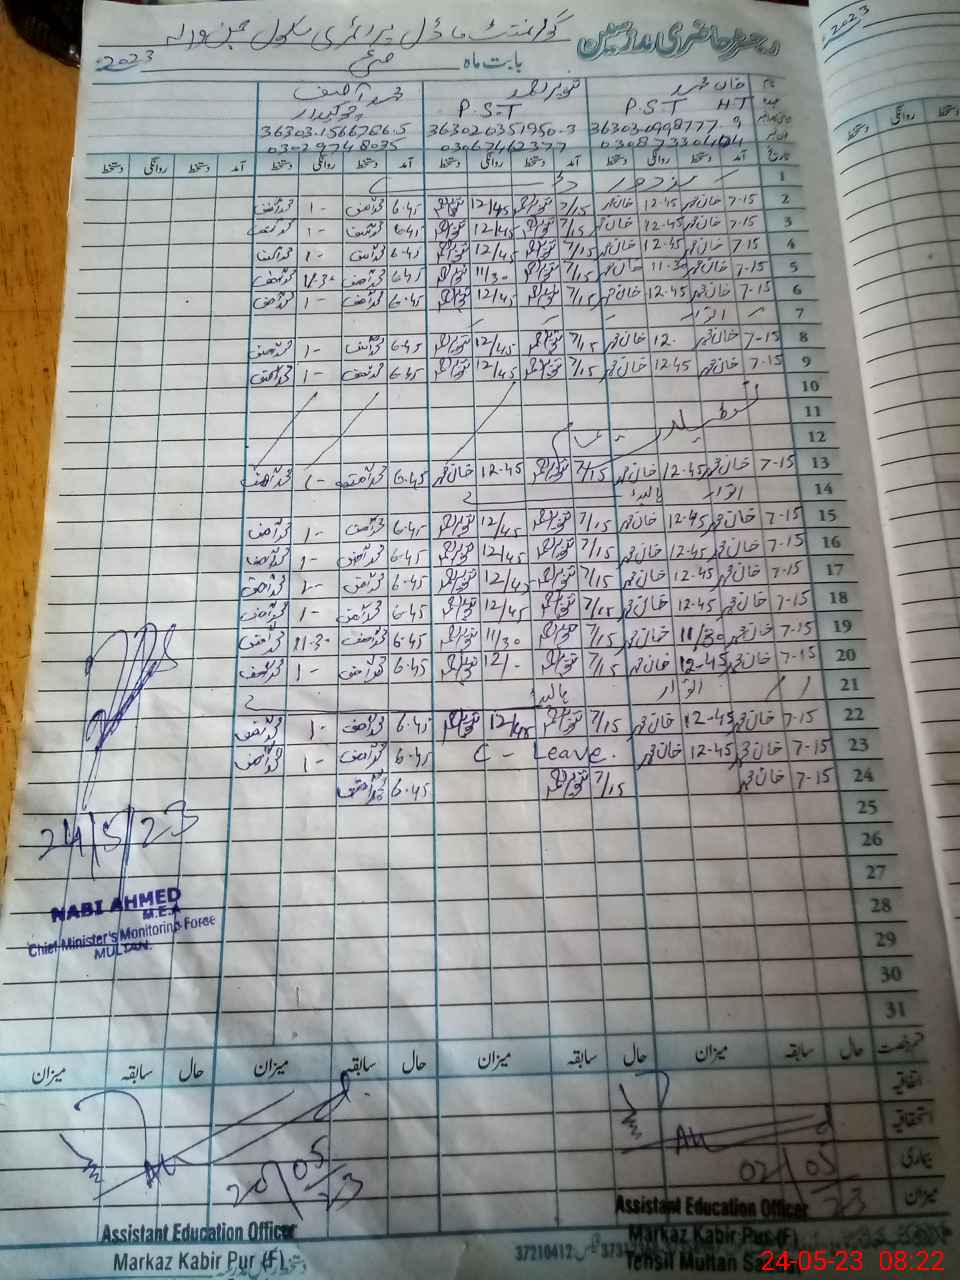 رجسٹر حاضری ملازمین گورنمنٹ ماڈل پرائمری سکول
بابت ماہ مئی 2023ء
نام خان محمد تنویر احمد محمد آصف
عہدہ P.S.T H.T P.S.T چوکیدار
36303-0998777-9 36302-0351950-3 36303-1566766-5
03087330404 03067462377 03029748035
تاریخ آمد دستخط روانگی دستخط آمد دستخط روانگی دستخط آمد دستخط روانگی دستخط آمد دستخط روانگی دستخط
1
2 7-15 خان محمد 12-45 خان محمد 7/15 تنویر احمد 12/45 تنویر احمد 6-45 محمد آصف 1- محمد آصف
3 7-15 خان محمد 12-45 خان محمد 7/15 تنویر احمد 12/45 تنویر احمد 6-45 محمد آصف 1- محمد آصف
4 7-15 خان محمد 12-45 خان محمد 7/15 تنویر احمد 12/45 تنویر احمد 6-45 محمد آصف 1- محمد آصف
5 7-15 خان محمد 11-30 خان محمد 7/15 تنویر احمد 11/30 تنویر احمد 6-45 محمد آصف 11-30 محمد آصف
6 7-15 خان محمد 12-45 خان محمد 7/15 تنویر احمد 12/45 تنویر احمد 6-45 محمد آصف 1- محمد آصف
7 اتوار
8 7-15 خان محمد 12- خان محمد 7/15 تنویر احمد 12/45 تنویر احمد 6-45 محمد آصف 1- محمد آصف
9 7-15 خان محمد 12-45 خان محمد 7/15 تنویر احمد 12/45 تنویر احمد 6-45 محمد آصف 1- محمد آصف
10
11
12
13 7-15 خان محمد 12-45 خان محمد 7/15 تنویر احمد 12-45 خان محمد 6-45 محمد آصف 1- محمد آصف
14 اتوار
15 7-15 خان محمد 12-45 خان محمد 7/15 تنویر احمد 12/45 تنویر احمد 6-45 محمد آصف 1- محمد آصف
16 7-15 خان محمد 12-45 خان محمد 7/15 تنویر احمد 12/45 تنویر احمد 6-45 محمد آصف 1- محمد آصف
17 7-15 خان محمد 12-45 خان محمد 7/15 تنویر احمد 12/45 تنویر احمد 6-45 محمد آصف 1- محمد آصف
18 7-15 خان محمد 12-45 خان محمد 7/15 تنویر احمد 12/45 تنویر احمد 6-45 محمد آصف 1- محمد آصف
19 7-15 خان محمد 11/30 خان محمد 7/15 تنویر احمد 11/30 تنویر احمد 6-45 محمد آصف 11-30 محمد آصف
20 7-15 خان محمد 12-45 خان محمد 7/15 تنویر احمد 12/- تنویر احمد 6-45 محمد آصف 1- محمد آصف
21 اتوار
22 7-15 خان محمد 12-45 خان محمد 7/15 تنویر احمد 12/45 تنویر احمد 6-45 محمد آصف 1- محمد آصف
23 7-15 خان محمد 12-45 خان محمد C - Leave. 6-45 محمد آصف 1- محمد آصف
24 7-15 خان محمد 7/15 تنویر احمد 6-45 محمد آصف
25
26
27
28
29
30
31
24/5/23
NABI AHMED
M.E.A
Chief Minister's Monitoring Force
MULTAN.
قسم رخصت حال سابقہ میزان حال سابقہ میزان حال سابقہ میزان حال سابقہ میزان
اتفاقیہ
استحقاقیہ
بیماری
میزان
02/05/23
Assistant Education Officer
Markaz Kabir Pur (F)
Tehsil Multan
20/05/23
Assistant Education Officer
Markaz Kabir Pur (F)
37210412
24-05-23 08:22